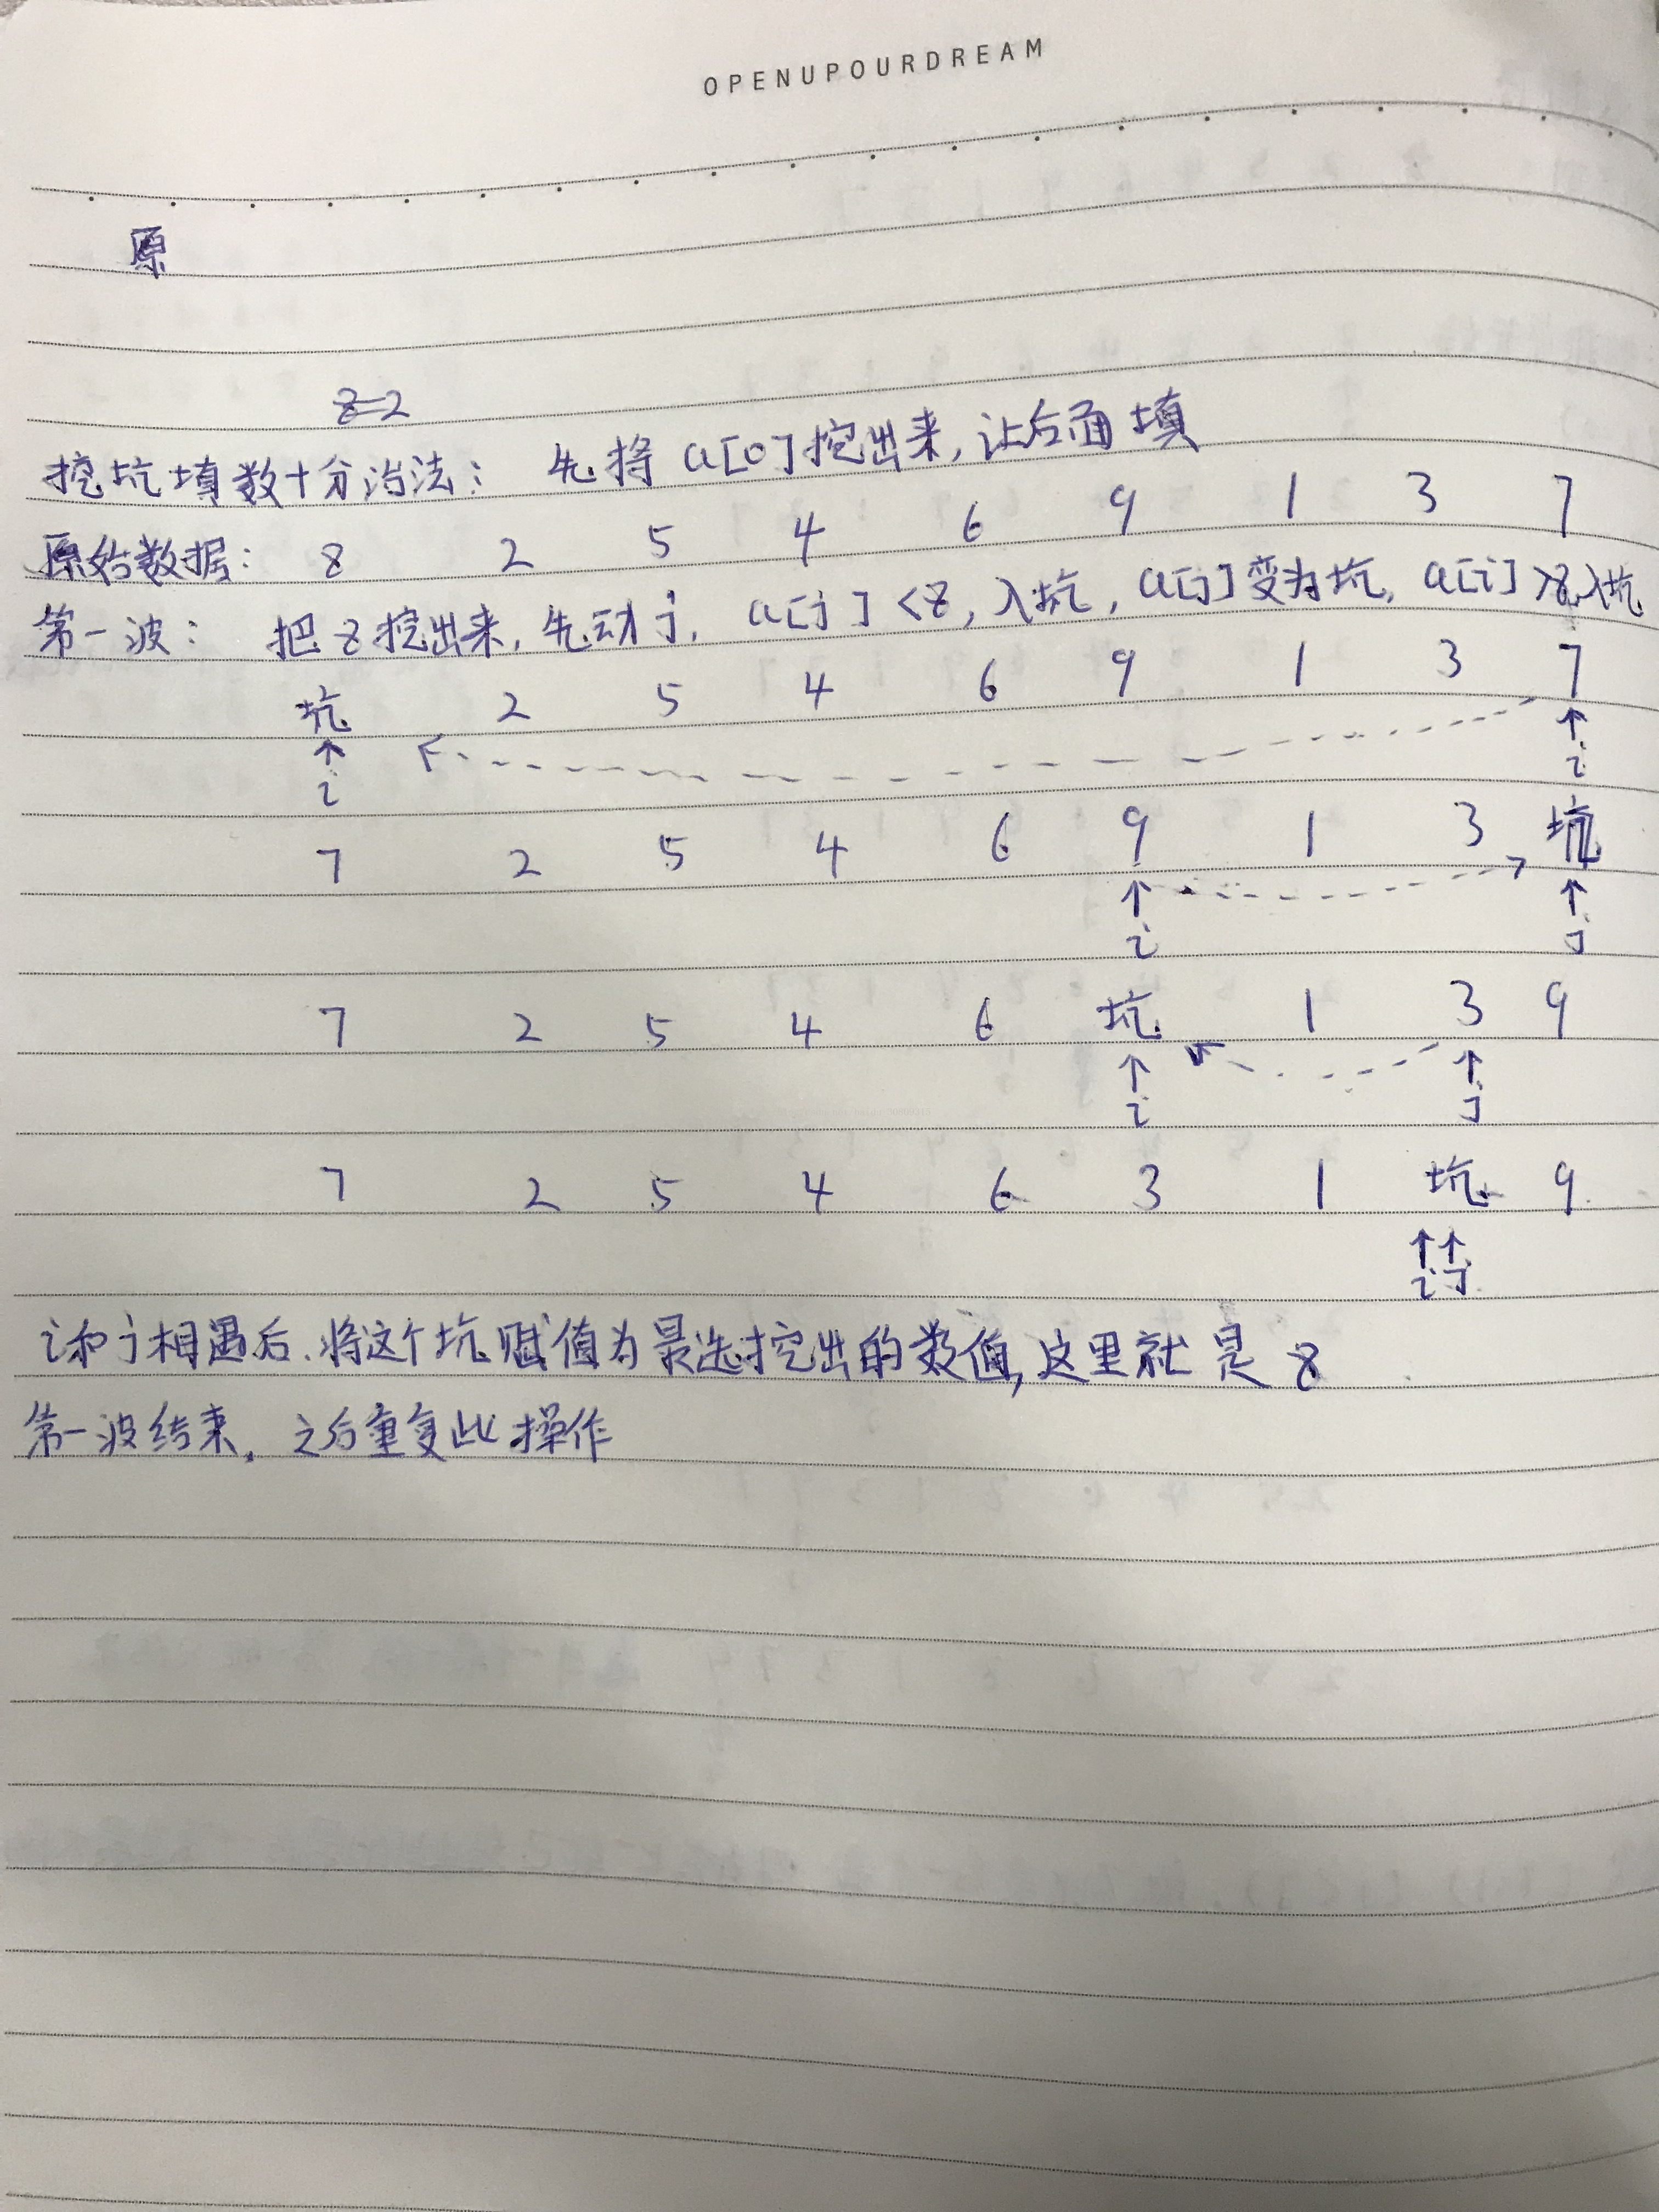 OPENUPOURDREAM
原
8=2
挖坑填数+分治法: 先将 a[0]挖出来,让后面填
原始数据: 8 2 5 4 6 9 1 3 7
第一波: 把8挖出来,先动j, a[j]<8,入坑,a[j]变为坑, a[i]>8入坑
坑 2 5 4 6 9 1 3 7
↑ ↑
i i
7 2 5 4 6 9 1 3 坑
↑ ↑
i j
7 2 5 4 6 坑 1 3 9
↑ ↑
i j
7 2 5 4 6 3 1 坑 9
↑↑
i j
i和j相遇后.将这个坑赋值为最先挖出的数值,这里就是8
第一波结束,之后重复此操作